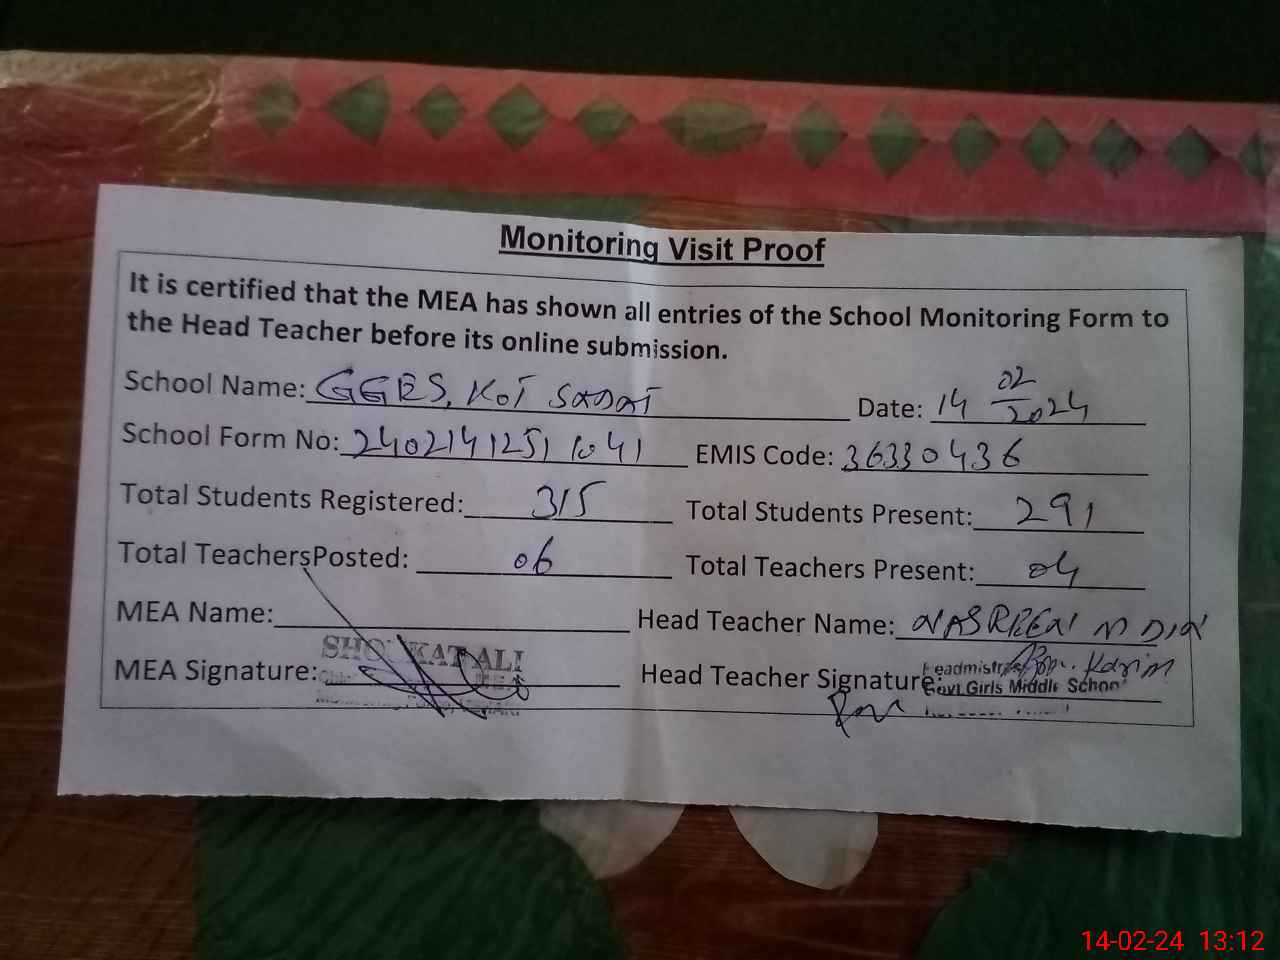 Monitoring Visit Proof
It is certified that the MEA has shown all entries of the School Monitoring Form to
the Head Teacher before its online submission.
School Name: GGES, KOT SADAT Date: 14 02/2024
School Form No: 2402141251 1041 EMIS Code: 36330436
Total Students Registered: 315 Total Students Present: 291
Total TeachersPosted: 06 Total Teachers Present: 04
MEA Name: Head Teacher Name: NASREEN M DIN
SHOUKAT ALI
MEA Signature: Head Teacher Signature:
Headmistress
Govt Girls Middle School
14-02-24 13:12